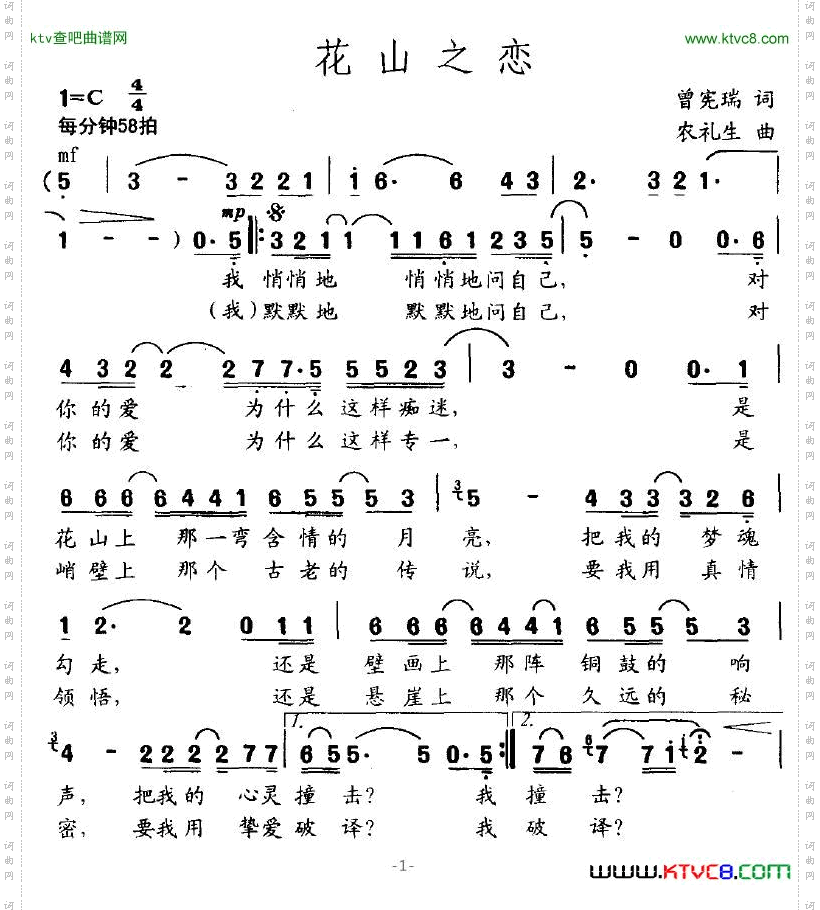 ktv查吧曲谱网
www.ktvc8.com
花山之恋
1=C 4/4
曾宪瑞 词
每分钟58拍
农礼生 曲
mf
(5 3 - 3221 1 6· 6 43 2· 32 1·
mp
1 - - ) 0·5 321 1 1161 235 5 - 0 0·6
我 悄悄地 悄悄地问自己, 对
(我)默默地 默默地问自己, 对
4 32 2 277·5 5523 3 - 0 0·1
你的爱 为什么这样痴迷, 是
你的爱 为什么这样专一, 是
666 6441 655 53 5 - 433 326
花山上 那一弯含情的 月 亮, 把我的 梦魂
峭壁上 那个 古老的 传 说, 要我用 真情
1 2· 2 011 666 6441 655 5 3
勾走, 还是 壁画上 那阵 铜鼓的 响
领悟, 还是 悬崖上 那个 久远的 秘
1. 2.
4 - 222 277 65 5· 5 0·5 76 7 71 2 -
声, 把我的 心灵撞 击? 我 撞 击?
密, 要我用 挚爱破 译? 我 破 译?
-1-
www.KTVC8.com
词曲网